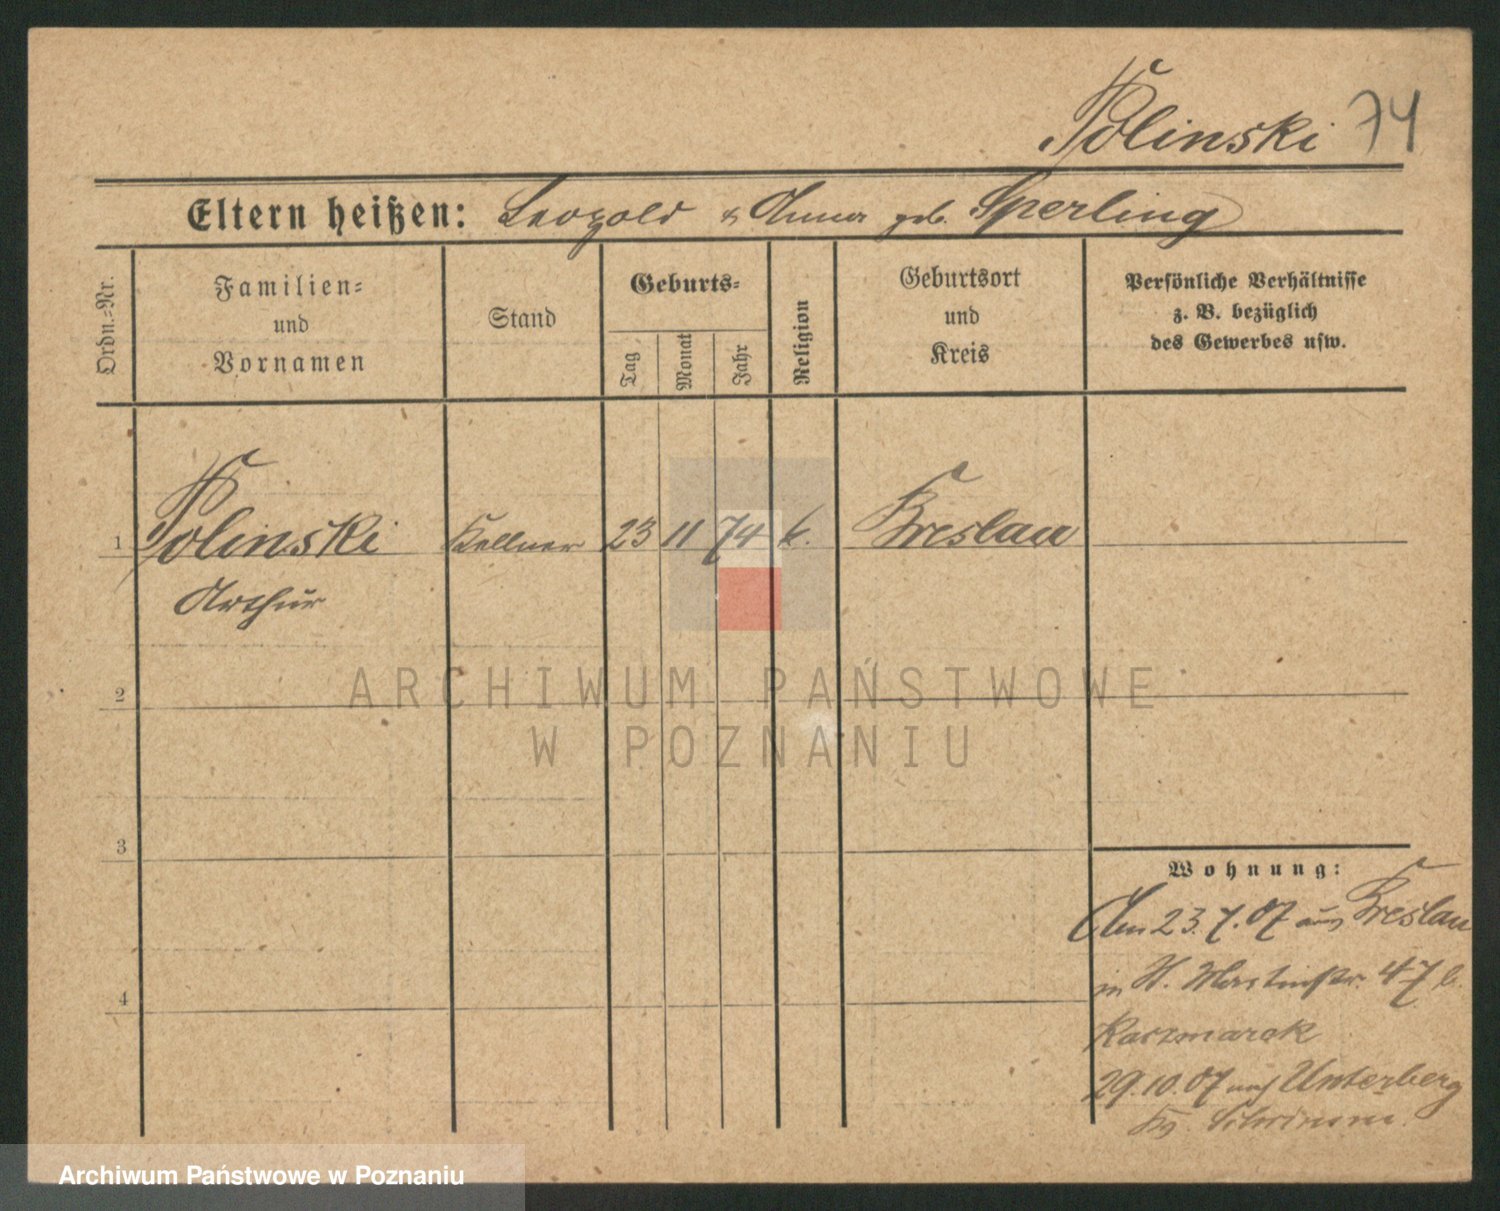 Polinski 74
Eltern heißen: Leopold & Anna geb. Sperling
Ordn.-Nr.
Familien- und Vornamen
Stand
Geburts-
Tag
Monat
Jahr
Religion
Geburtsort und Kreis
Persönliche Verhältnisse
z. B. bezüglich
des Gewerbes usw.
1 Polinski Kellner 23 11 74 k. Breslau
Arthur
2
3
4
Wohnung:
Am 23.7.07 aus Breslau
in St. Martinstr. 47 b.
Kaczmarek
29.10.07 nach Unterberg
Kr. Schrimm.
ARCHIWUM PAŃSTWOWE
W POZNANIU
Archiwum Państwowe w Poznaniu